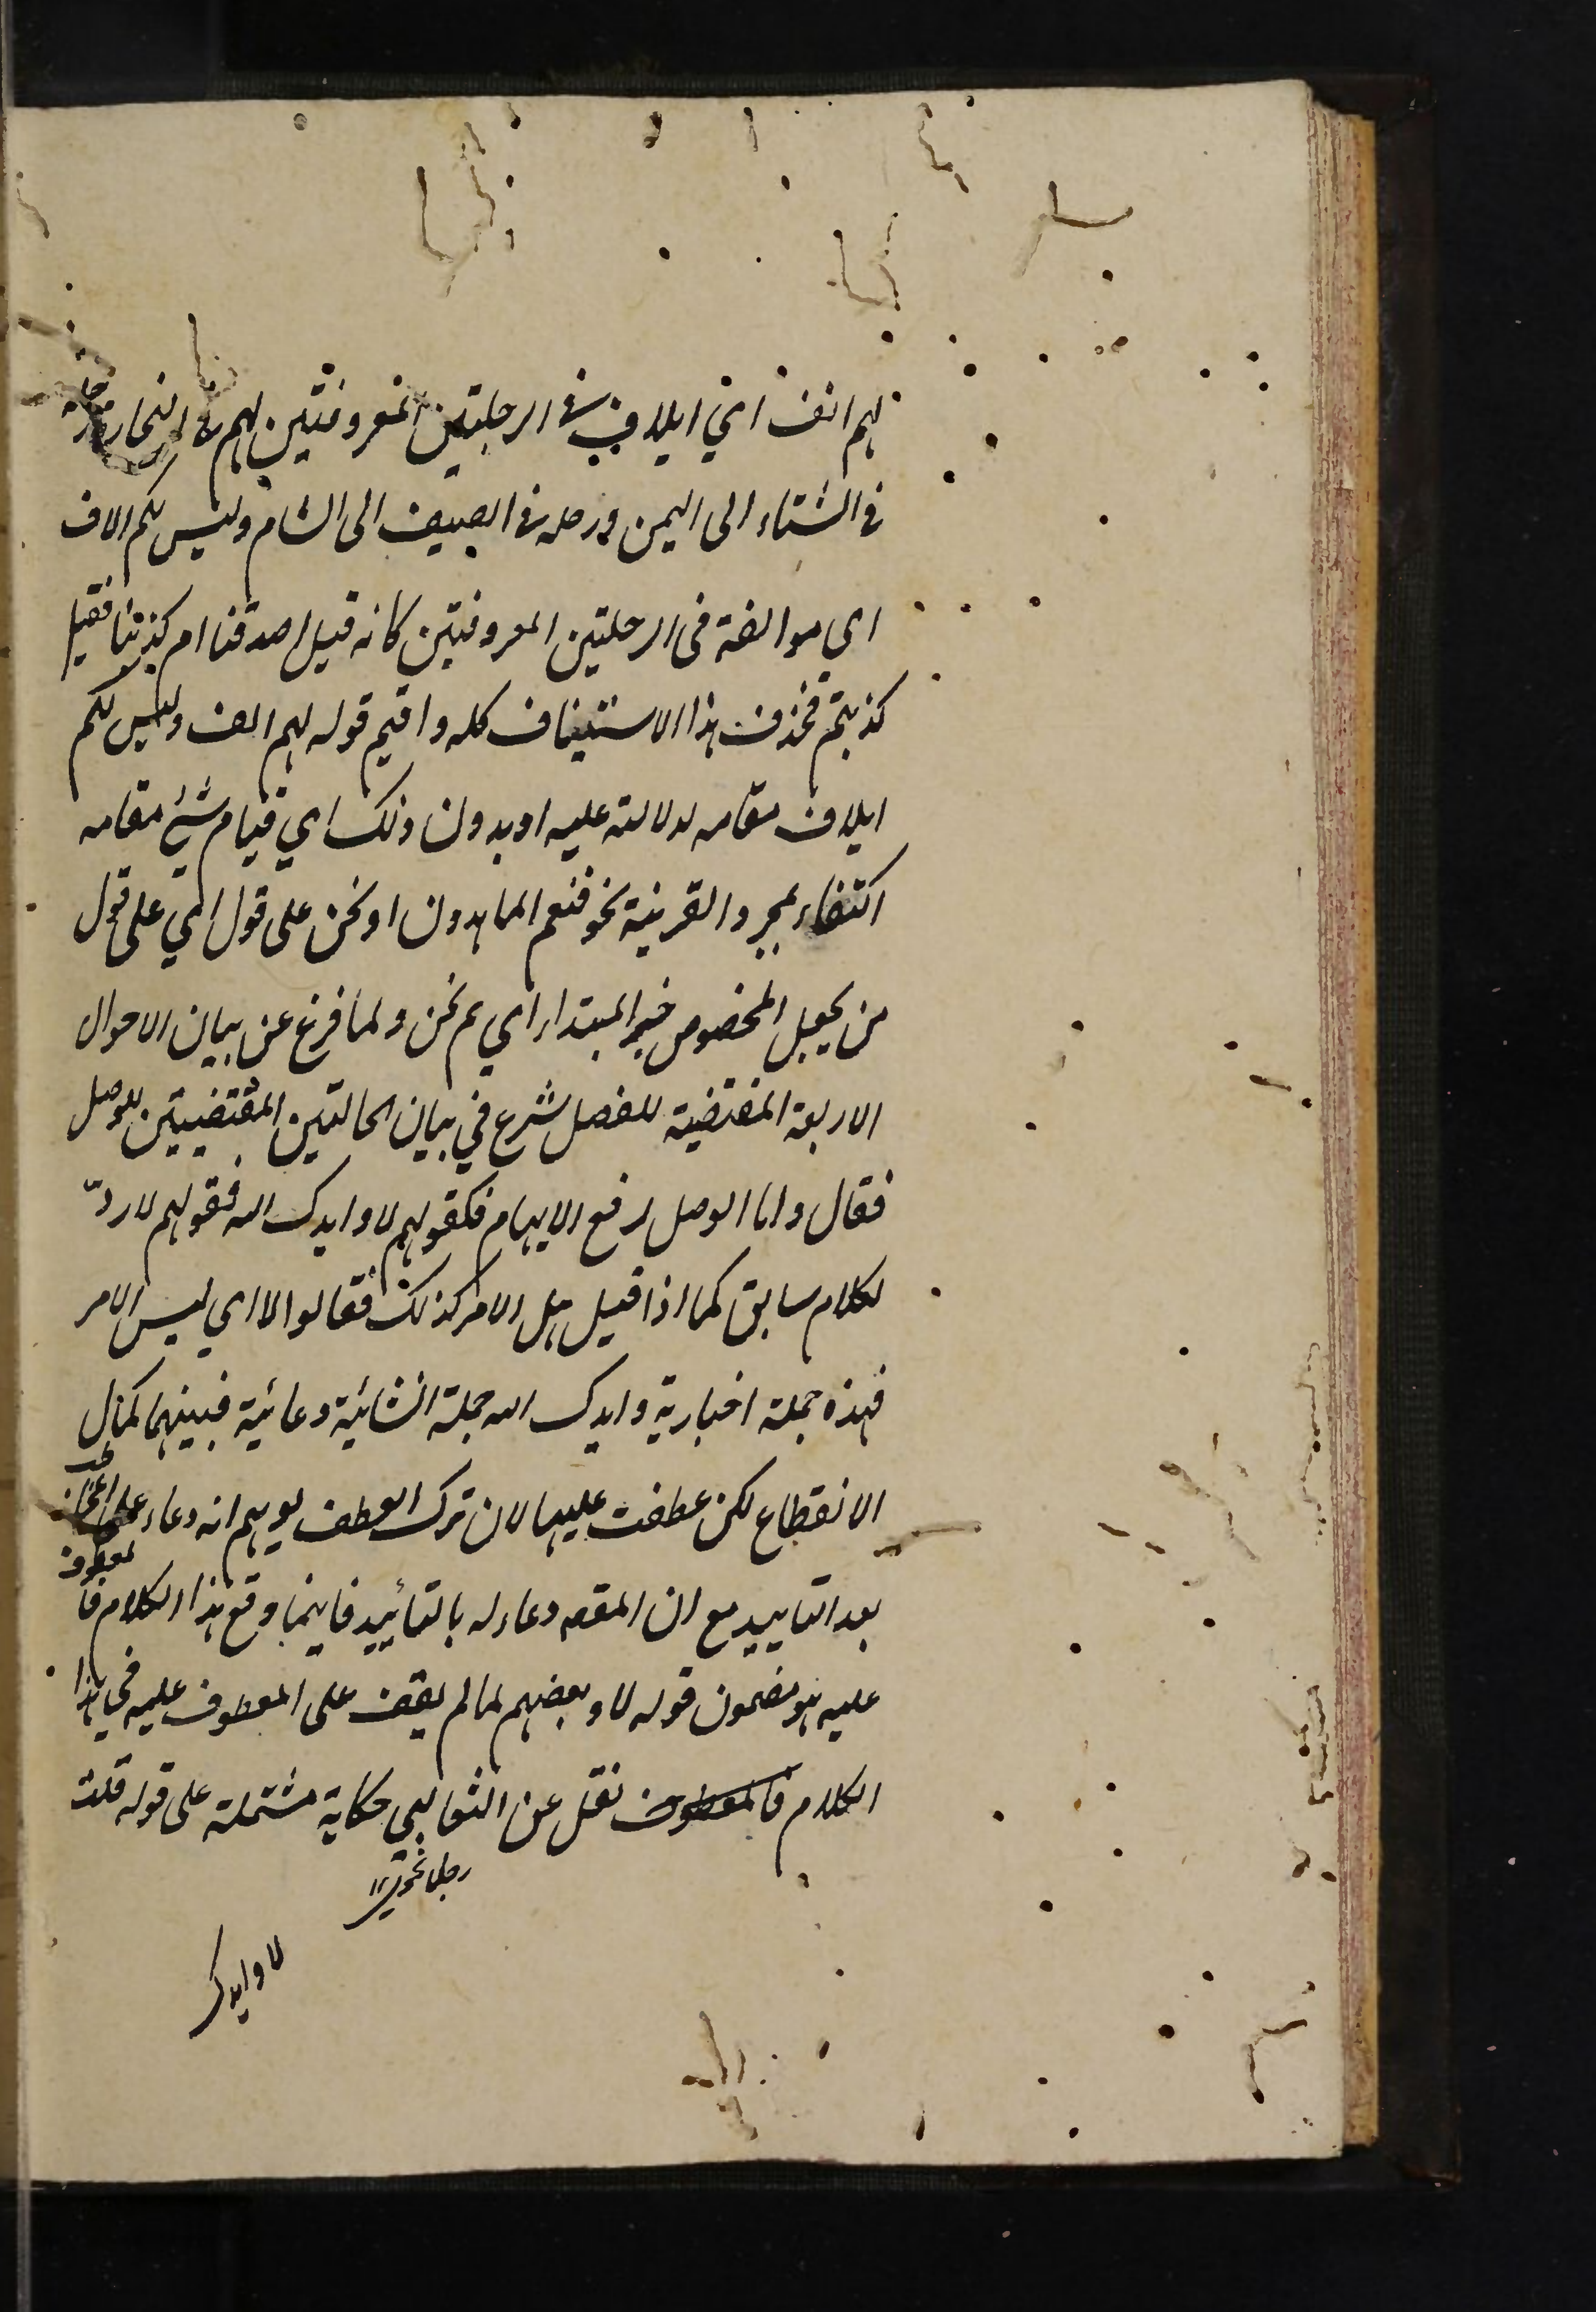 لهم الف اي ايلاف في الرحلتين المعروفتين لهم في التجارة رحلة
في الشتاء الى اليمن ورحلة في الصيف الى الشام وليس لكم الاف
اي موالفة في الرحلتين المعروفتين كانه قيل اصدقنا ام كذبنا فقيل
كذبتم فحذف هذا الاستيناف كله واقيم قوله لهم الف وليس لكم
ايلاف مقامه لدلالته عليه او بدون ذلك اي قيام شيء مقامه
اكتفاء بمجرد القرينة نحو فنعم الماهدون او نحن على قول اي على قول
من يجعل المخصوص خبر المبتداء اي هم نحن ولما فرغ عن بيان الاحوال
الاربعة المقتضية للفصل شرع في بيان الحالتين المقتضيتين للوصل
فقال واما الوصل لدفع الايهام فكقولهم لا وايدك الله فقولهم لا ردّ
لكلام سابق كما اذا قيل هل الامر كذلك فقالوا لا اي ليس الامر
فهذه جملة اخبارية وايدك الله جملة انشائية دعائية فبينهما كمال
الانقطاع لكن عطفت عليها لان ترك العطف يوهم انه دعاء على المخاطب
بعد التاييد مع ان المقص دعاء له بالتأييد فاينما وقع هذا الكلام فالمعطوف
عليه هو مضمون قوله لا وبعضهم لما لم يقف على المعطوف عليه في هذا
الكلام نقل عن الثعالبي حكاية مشتملة على قوله قلت
لا وايدك